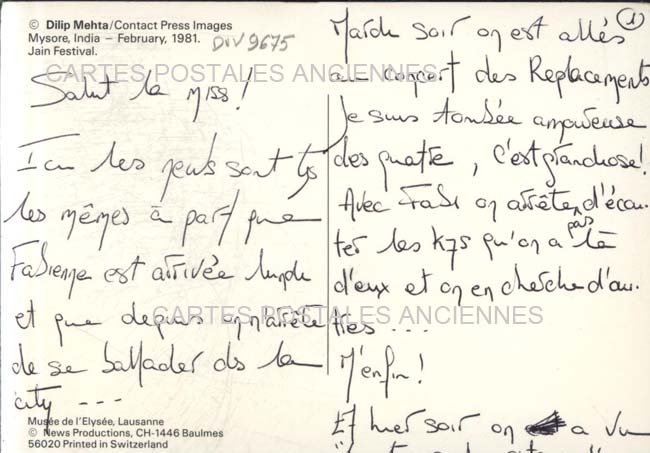 © Dilip Mehta/Contact Press Images
Mysore, India – February, 1981.
Jain Festival.
DIV 9675
CARTES POSTALES ANCIENNES
Salut la miss!
Ici les news sont tjs
les mêmes à part que
Fabienne est arrivée lundi
et que depuis on arrête
de se ballader ds la
city ---
CARTES POSTALES ANCIENNES
Musée de l'Elysée, Lausanne
© News Productions, CH-1446 Baulmes
56020 Printed in Switzerland
1
Mardi soir on est allés
au concert des Replacements
Je suis tombée amoureuse
des quatre, c'est grandiose!
Avec Fabi on arrête pas d'écou-
ter les K7s qu'on a
d'eux et on en cherche d'au-
tres ...
M'enfin!
Et hier soir on a vu